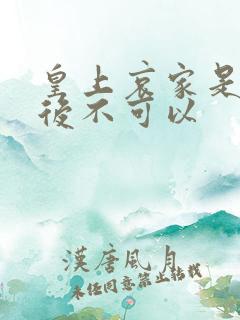 皇上哀家是
後不可以
漢唐風月
未任同意禁止轉載